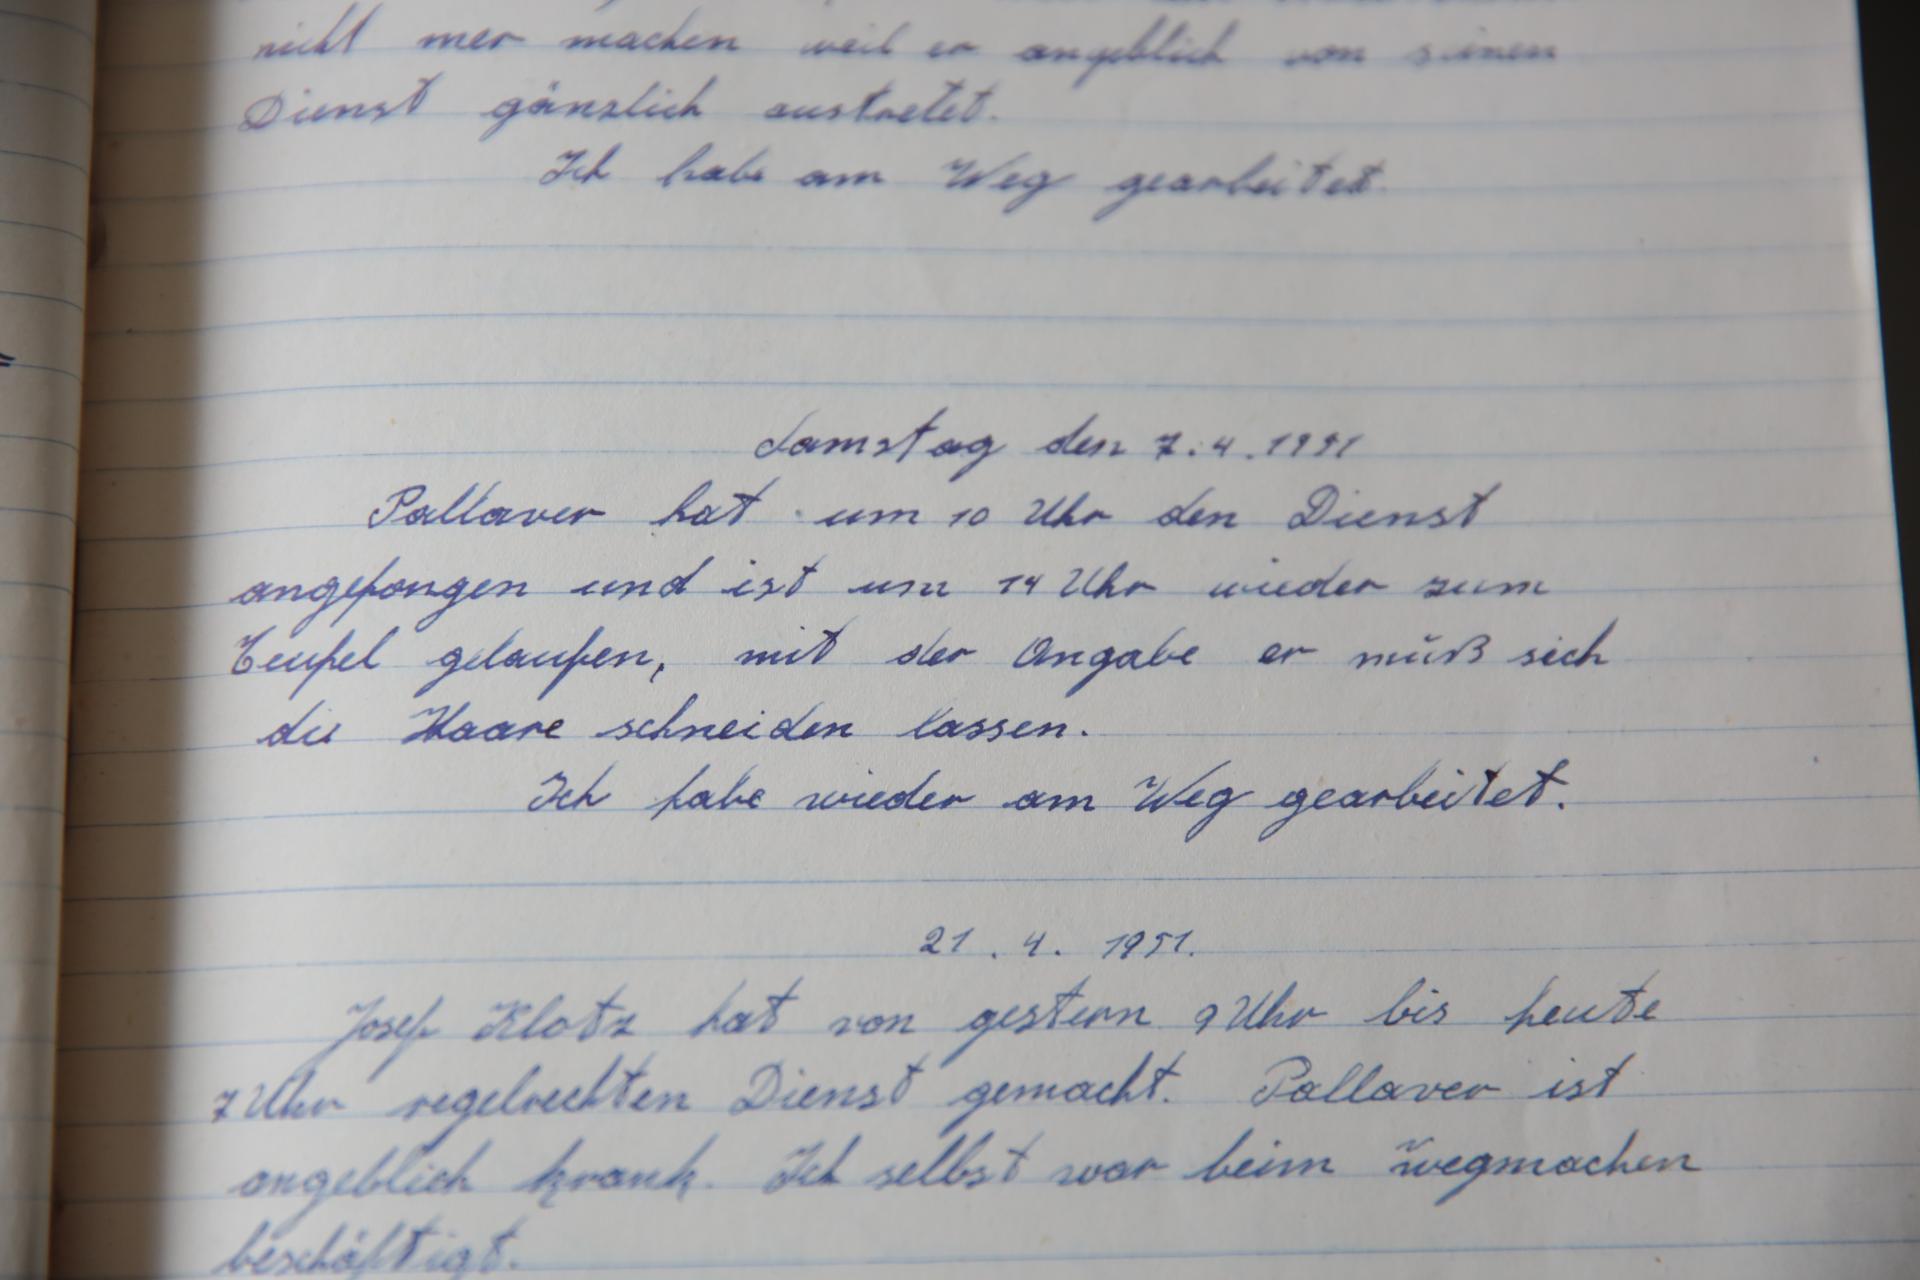 nicht mer machen weil er angeblich von seinen
Dienst gänzlich austretet.
Ich habe am Weg gearbeitet.
Samstag den 7.4.1951
Pallaver hat um 10 Uhr den Dienst
angefangen und ist um 14 Uhr wieder zum
Teufel gelaufen, mit der Angabe er muß sich
die Haare schneiden lassen.
Ich habe wieder am Weg gearbeitet.
21.4.1951.
Josef Klotz hat von gestern 9 Uhr bis heute
7 Uhr regelrechten Dienst gemacht. Pallaver ist
angeblich krank. Ich selbst war beim wegmachen
beschäftigt.